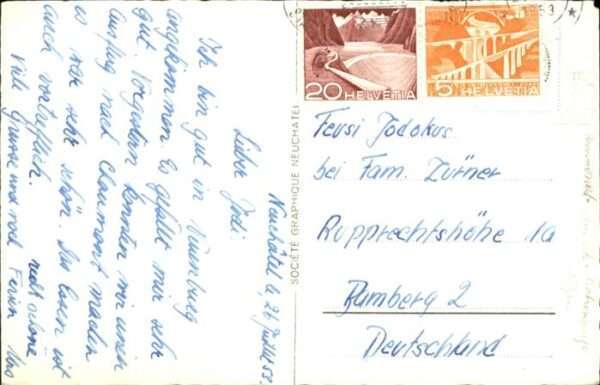 Neuchâtel, d. 21. Juli 53.
Lieber Jodi.
Ich bin gut in Neuenburg
angekommen. Es gefällt mir sehr
gut. Vorgestern konnten wir einen
Ausflug nach Chaumont machen
es war sehr schön. Das Essen ist
auch vortrefflich.
recht schöne
Viele Grüsse und noch Ferien
SOCIÉTÉ GRAPHIQUE NEUCHATEL
20 HELVETIA
5 HELVETIA
Jodokus
bei Fam. Zürner
Rupprechtshöhe 1a
Bamberg 2
Deutschland